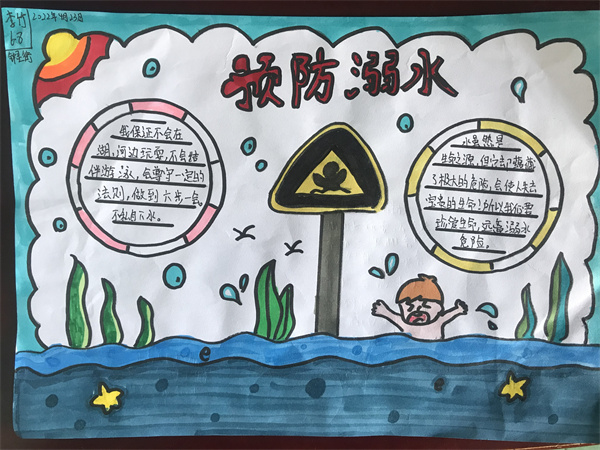 2022年4月23日
预防溺水
我保证不会在
湖、河边玩耍,不自结
伴游泳,会遵守一定的
法则,做到六步一会,
不私自下水。
水虽然是
生命之源,但它却蕴藏
了极大的危险,会使人失去
宝贵的生命!所以我们要
珍惜生命,远离溺水
危险。